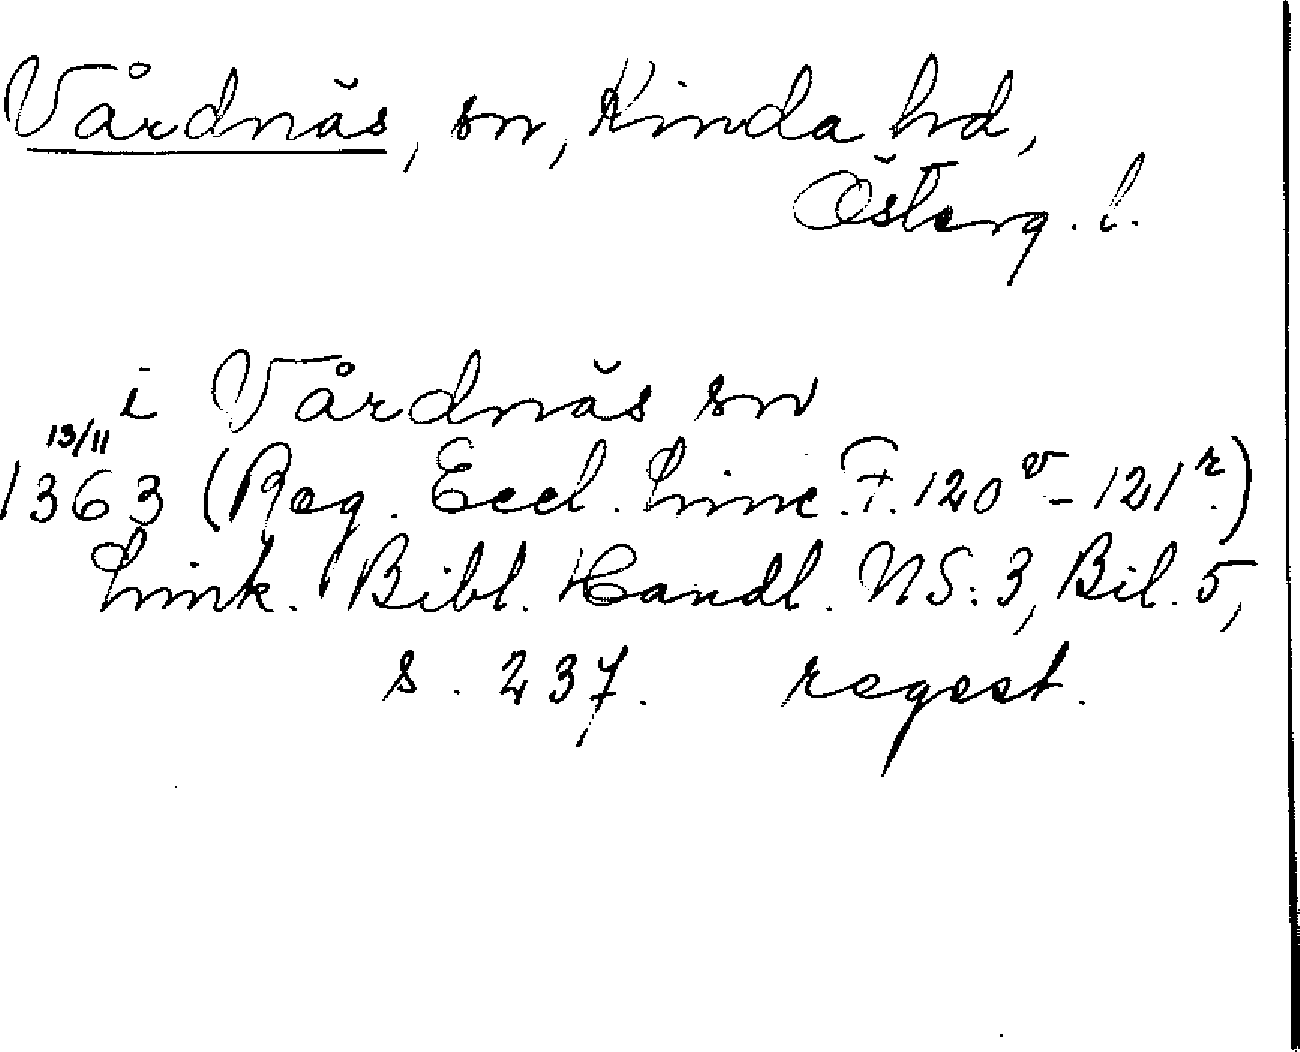 Vårdnäs, sn, Kinda hd,
Österg. l.
i Vårdnäs sn
13/11
1363 (Reg. Eccl. Linc. F. 120v – 121r.)
Link. Bibl. Handl. NS: 3, Bil. 5,
s. 237. regest.